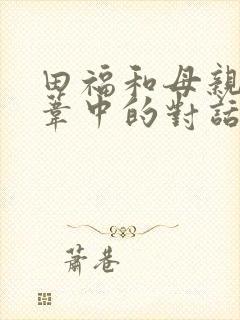 田福和母親
葦中的對話
蕭巷